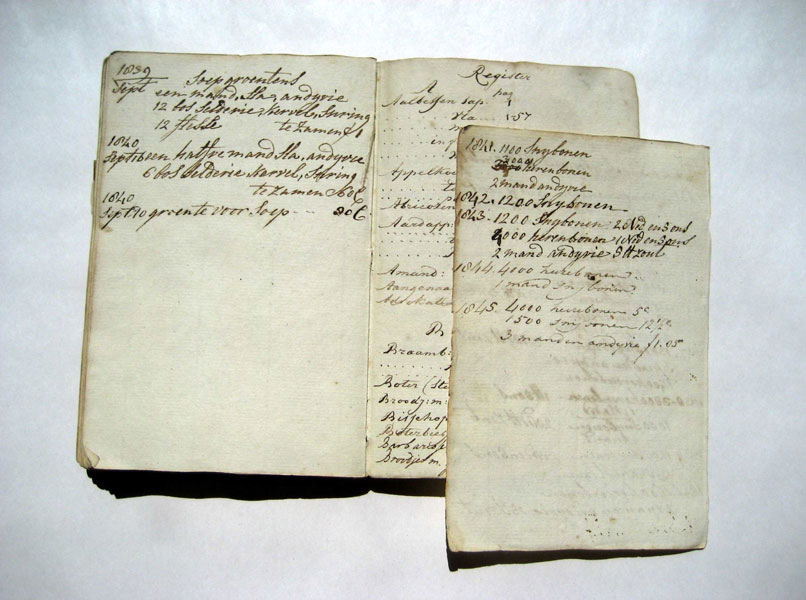 1839
Sept Soepgroentens
een mand, Sla, andyvie
12 bos Selderie, Kervel, Suring
12 te Zamen f 1
1840
Sept een halfve mand Sla, andyvie
6 bos Selderie Karvel, Suring
te Zamen
1840
Sept 10 groente voor Soep - - 80 C
Register
A pag
Aalbessen sap. 1
Vla 1.57
Appelkoe
Abricosen
Aardapp:
Amand:
Aangenaa
Advokaten
B
Braamb:
Boter (Ste
Broodj: m:
Bisschop
Boterbie
Barbaris
Broodjes m.
1841. 1100 Snybonen
herenbonen
2 mand andyvie
1842. 1200 Snybonen
1843 - 1200 Snybonen 2 Ned en 3 ons
4000 herenbonen 1 Ned en 3 ons
2 mand andyvie 3 ℔ zout
1844. 4000 herebonen
1 mand snybonen
1845. 4000 herebonen 5c
1500 snybonen 12½c
3 manden andyvie f 1.05